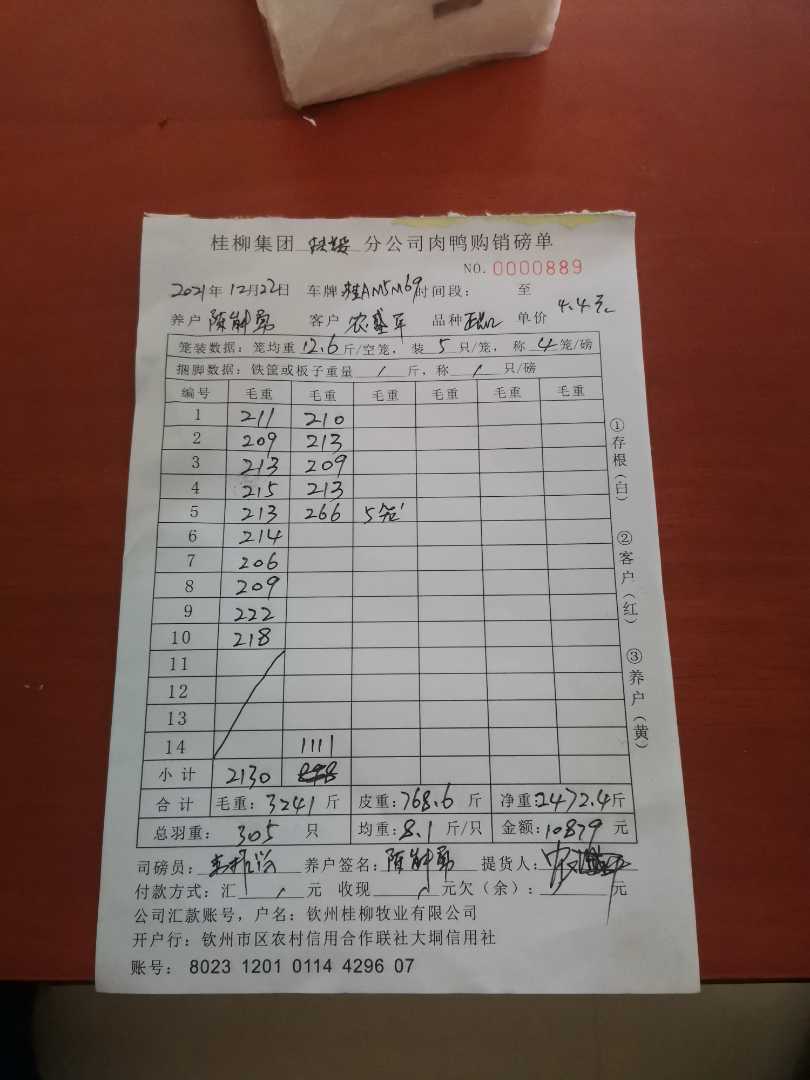 桂柳集团 分公司肉鸭购销磅单
NO. 0000889
2021年12月22日 车牌:桂AM5M69 时间段: 至
养户 陈 勇 客户 农 军 品种 单价 4.4元
笼装数据: 笼均重 12.6 斤/空笼, 装 5 只/笼, 称 4 笼/磅
捆脚数据: 铁筐或板子重量 / 斤, 称 / 只/磅
编号 毛重 毛重 毛重 毛重 毛重 毛重
1 211 210
2 209 213
3 213 209
4 215 213
5 213 266 5笼
6 214
7 206
8 209
9 222
10 218
11
12
13
14 1111
小计 2130
合计 毛重: 3241 斤 皮重: 768.6 斤 净重: 2472.4 斤
总羽重: 305 只 均重: 8.1 斤/只 金额: 10879 元
司磅员: 养户签名: 陈 勇 提货人:
付款方式: 汇 / 元 收现 / 元 欠(余): 元
公司汇款账号, 户名: 钦州桂柳牧业有限公司
开户行: 钦州市区农村信用合作联社大垌信用社
账号: 8023 1201 0114 4296 07
①存根(白)
②客户(红)
③养户(黄)